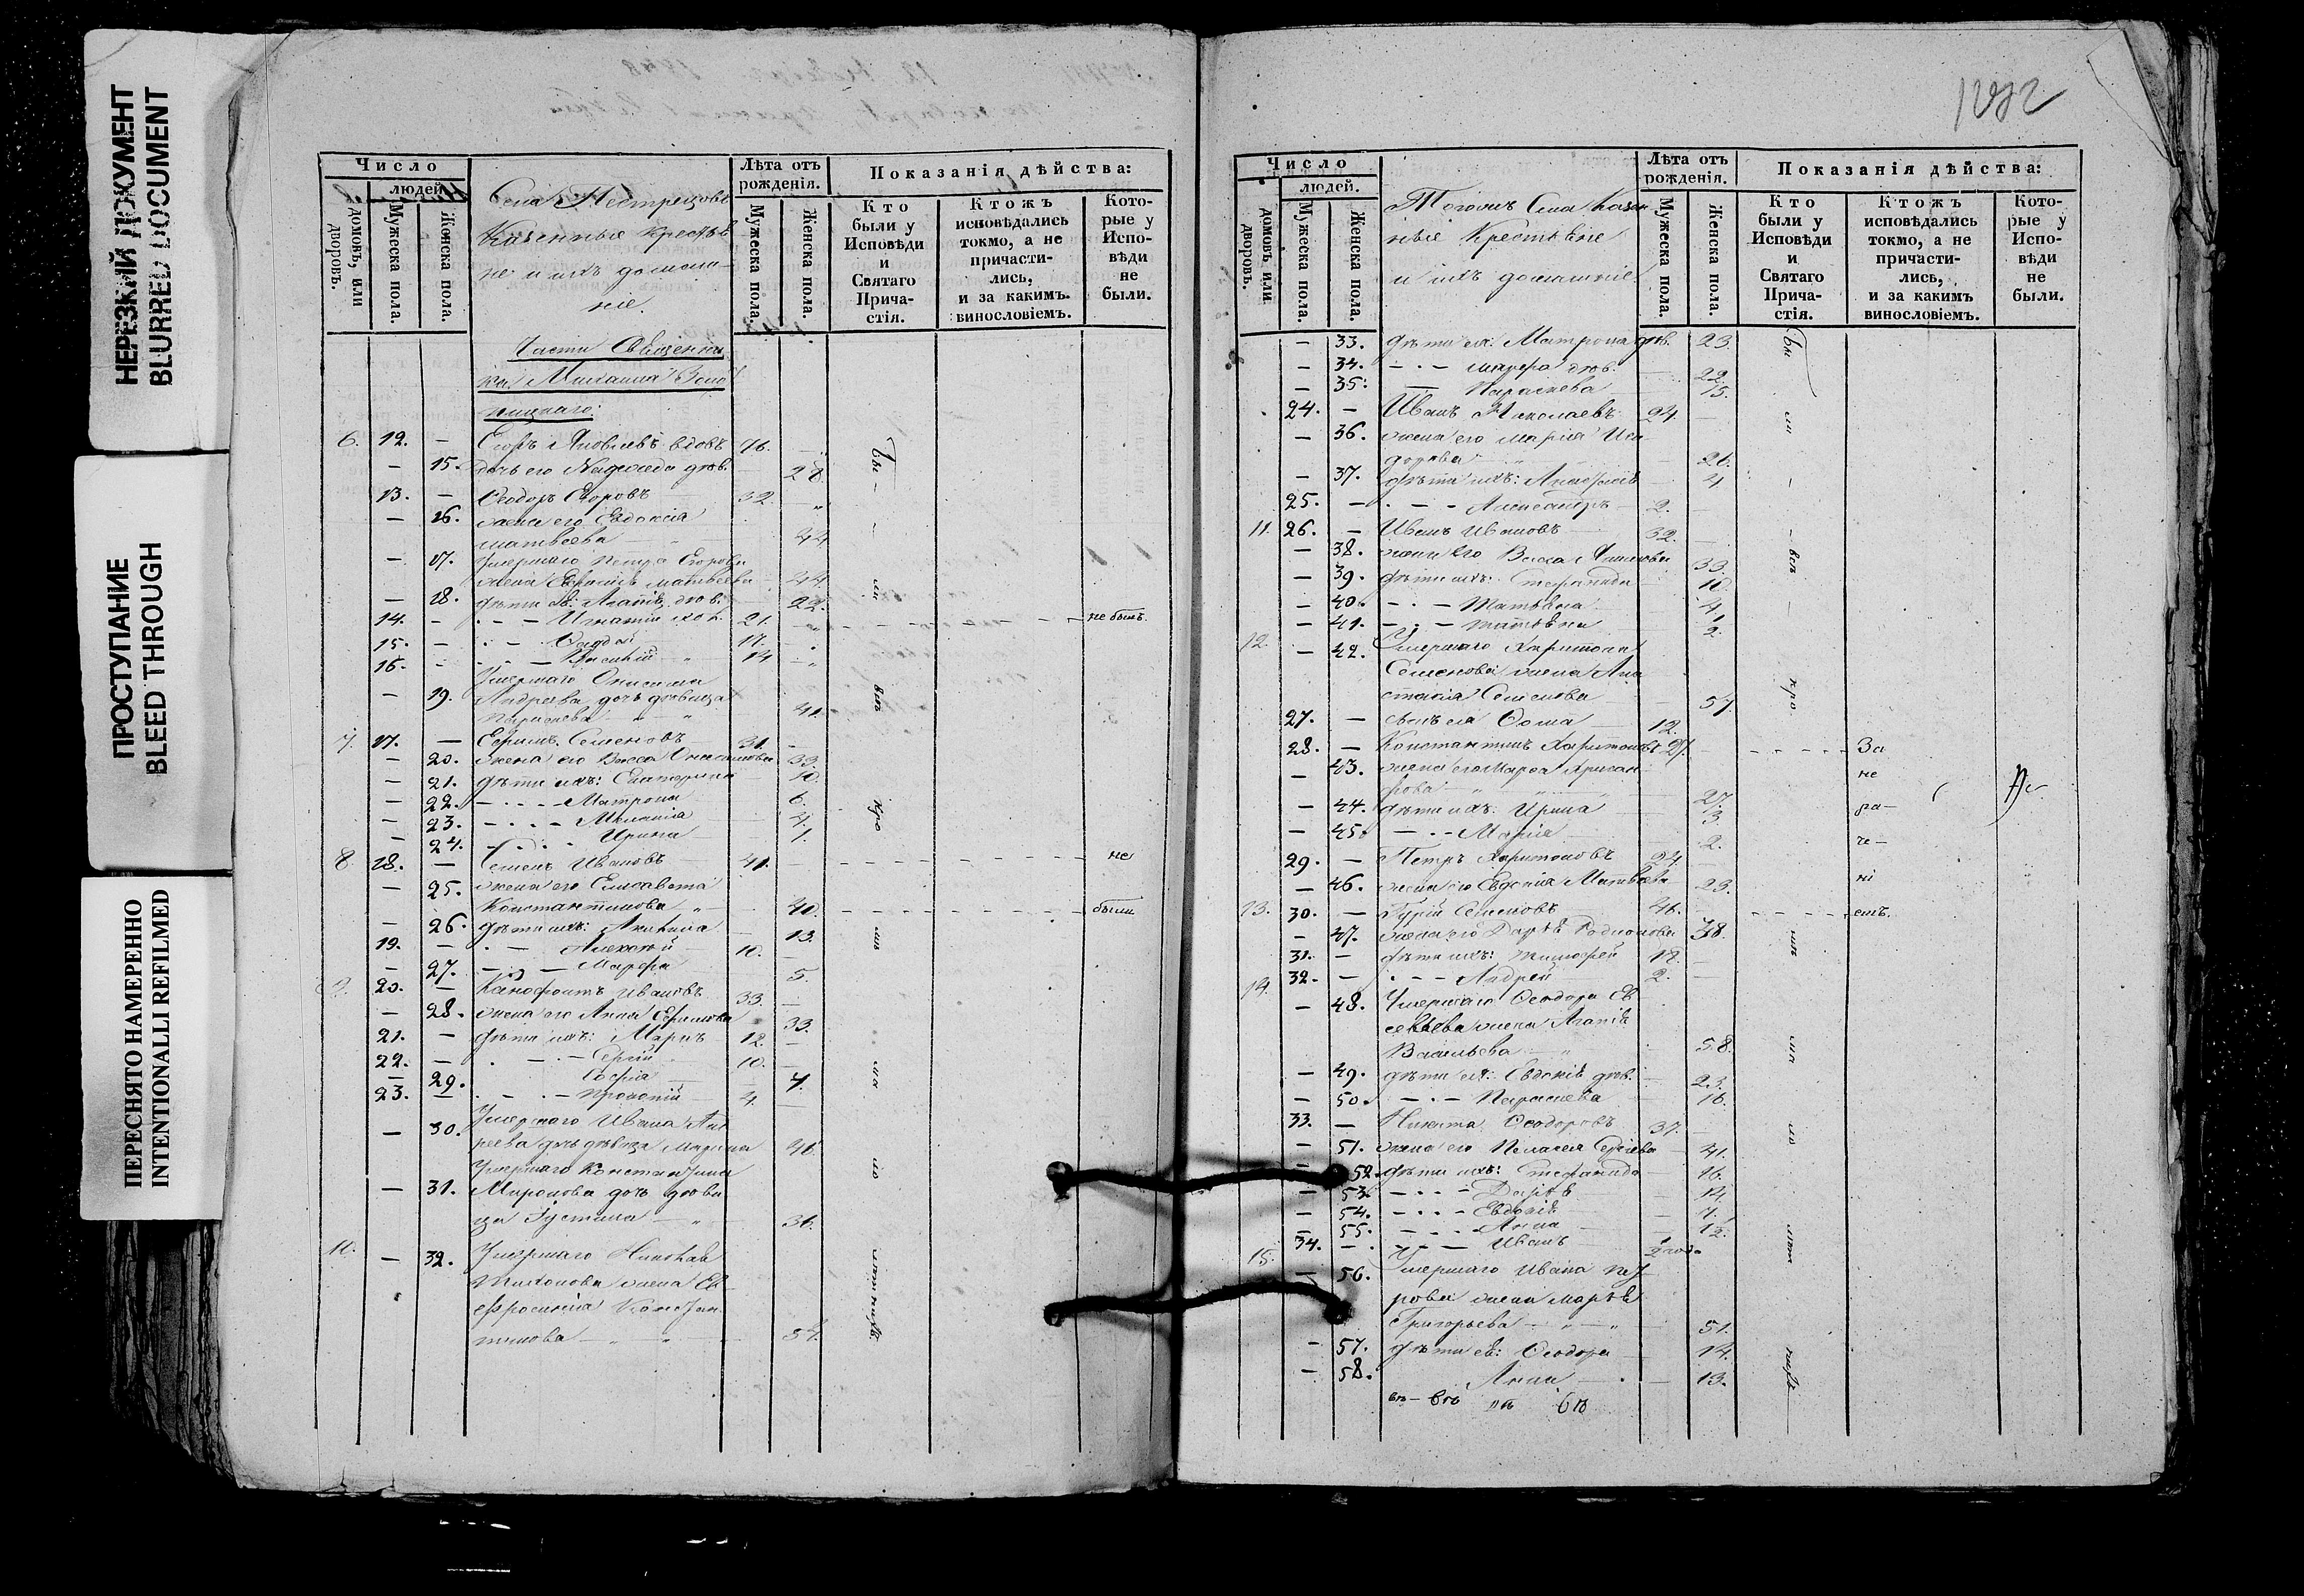 НЕРЕЗКИЙ ДОКУМЕНТ
BLURRED DOCUMENT
ПРОСТУПАНИЕ
BLEED THROUGH
ПЕРЕСНЯТО НАМЕРЕННО
INTENTIONALLI REFILMED
Число
людей.
домовъ, или дворовъ.
Мужеска пола.
Женска пола.
Казенные крестья
не и ихъ домаш-
ніе.
Лѣта отъ рожденія.
Мужеска пола.
Женска пола.
Показанія дѣйства:
Кто были у Исповѣди и Святаго Прича-стія.
Ктожъ исповѣдались токмо, а не причасти-лись, и за какимъ. винословіемъ.
Кото-рые у Испо-вѣди не были.
Части Священни
ка Михаила
6. 12. — Егоръ Яковлевъ вдовъ 76.
— 15. дочь его Надежда дѣв. 28
13. — Ѳеодоръ Егоровъ 32.
— 16. жена его Евдокія
Матвѣева 44
— 17. Умершаго Петра Егорова
жена Матвѣева 44.
— 18. Агапія дѣв. 22.
14. — Игнатій хол. 21. не былъ.
15. — 17.
16. — Василій 14
Умершаго Онисима
— 19. Андреева дочь дѣвица
Параскева 41.
7. 17. — Ефимъ Семеновъ 31.
— 20. жена его Васса 33.
— 21. дѣти ихъ: Екатерина 10.
— 22. Матрона 6.
— 23. Меланія 4.
— 24. Ирина 1.
8. 18. — Семенъ Ивановъ 41. не
— 25. жена его Елисавета
Константинова 40. были
— 26. дѣти ихъ: Акилина 13.
19. — Алексѣй 10.
— 27. Марфа 5.
9. 20. — Ксенофонтъ Ивановъ 33.
— 28. жена его Анна Ефимова 33.
21. — дѣти ихъ: Маркъ 12.
22. — Сергій 10.
— 29. Софія 7.
23. — Прокопій 4.
Умершаго Ивана Анд
— 30. реева дочь дѣвица Марина 46.
Умершаго Константина
— 31. Миронова дочь дѣви
ца Іустина 31.
10. — 32. Умершаго Николая
Тихонова жена Ев
фросинія Констан
тинова 54.
1272
Число
людей.
домовъ, или дворовъ.
Мужеска пола.
Женска пола.
Тогожъ Села Казен
ные Крестьяне
и ихъ домашніе
Лѣта отъ рожденія.
Мужеска пола.
Женска пола.
Показанія дѣйства:
Кто были у Исповѣди и Святаго Прича-стія.
Ктожъ исповѣдались токмо, а не причасти-лись, и за какимъ винословіемъ.
Кото-рые у Испо-вѣди не были.
— 33. дѣти ея: Матрона дѣв. 23.
— 34. Марфа дѣв. 22.
— 35. Параскева 15.
24. — Иванъ Николаевъ 24.
— 36. жена его Марія Иси
дорова 26.
— 37. дѣти ихъ: 4
25. — Александръ 2.
11. 26. — Иванъ Ивановъ 32.
— 38. жена его Васса 33.
— 39. дѣти ихъ: Стефанида 10.
— 40. Татьяна 4.
— 41. Татьяна 2.
12. — 42. Умершаго Харитона
Семенова жена Ана
стасія Семенова 57
27. — сынъ ея Ѳома 12.
28. — Константинъ Харитоновъ 27. За
— 43. жена его Марѳа не
— 44. дѣти ихъ: Ирина 3 ра—
— 45. Марія 2. че—
29. — Петръ Харитоновъ 24.
— 46. жена его Евдокія Матвѣева 23. ні
13. 30. — Гурій Семеновъ 46. емъ.
— 47. жена его Дарья Родионова 38.
31. — дѣти ихъ: Тимофей 18.
32. — Андрей 2.
14. — 48. Умершаго Ѳеодора Ев
сеева жена Агапія
Васильева 58.
— 49. дѣти ея: Евдокія дѣв. 23.
— 50. Параскева 16.
33. — Никита Ѳеодоровъ 37.
— 51. жена его Пелагея Сергіева 41.
— 52. дѣти ихъ: Стефанида 16.
— 53. Дарья 14.
— 54. Евдокія 7.
— 55. Анна 12.
34. — Иванъ
15. — 56. Умершаго Ивана Пет
рова жена Марья
Григорьева 51.
— 57. дѣти ея: Ѳеодора 14.
— 58. Анна 13.